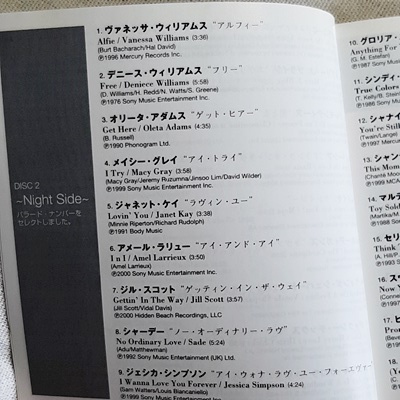 DISC 2
~Night Side~
バラード・ナンバーを
セレクトしました。
1. ヴァネッサ・ウィリアムス “アルフィー”
Alfie / Vanessa Williams (3:36)
(Burt Bacharach/Hal David)
Ⓟ1996 Mercury Records Inc.
2. デニース・ウィリアムス “フリー”
Free / Deniece Williams (5:58)
(D. Williams/H. Redd/N. Watts/S. Greene)
Ⓟ1976 Sony Music Entertainment Inc.
3. オリータ・アダムス “ゲット・ヒアー”
Get Here / Oleta Adams (4:35)
(B. Russell)
Ⓟ1990 Phonogram Ltd.
4. メイシー・グレイ “アイ・トライ”
I Try / Macy Gray (3:58)
(Macy Gray/Jeremy Ruzumna/Jinsoo Lim/David Wilder)
Ⓟ1999 Sony Music Entertainment Inc.
5. ジャネット・ケイ “ラヴィン・ユー”
Lovin' You / Janet Kay (3:38)
(Minnie Riperton/Richard Rudolph)
Ⓟ1991 Body Music
6. アメール・ラリュー “アイ・アンド・アイ”
I n I / Amel Larrieux (3:50)
(Amel Larrieux)
Ⓟ2000 Sony Music Entertainment Inc.
7. ジル・スコット “ゲッティン・イン・ザ・ウェイ”
Gettin' In The Way / Jill Scott (3:57)
(Jill Scott/Vidal Davis)
Ⓟ2000 Hidden Beach Recordings, LLC
8. シャーデー “ノー・オーディナリー・ラヴ”
No Ordinary Love / Sade (5:24)
(Adu/Matthewman)
Ⓟ1992 Sony Music Entertainment (UK) Ltd.
9. ジェシカ・シンプソン “アイ・ウォナ・ラヴ・ユー・フォーエヴァー
I Wanna Love You Forever / Jessica Simpson (4:24)
(Sam Watters/Louis Biancaniello)
Ⓟ1999 Sony Music Entertainment Inc.
10. グロリア・
Anything For
(G. M. Estefan)
Ⓟ1987 Sony Mus
11. シンディ・
True Colors
(T. Kelly/B. Stein
Ⓟ1986 Sony Mus
12. シャナイ
You're Still
(Twain/Lange)
Ⓟ1997 Mercury
13. シャン
This Mom
(Chanté Moo
Ⓟ1999 MCA
14. マルテ
Toy Sold
(Martika/M
Ⓟ1988 So
15. セリ
Think T
(A. Hill/P.
Ⓟ1993 S
16. ス
Now Y
17. ピ
18.